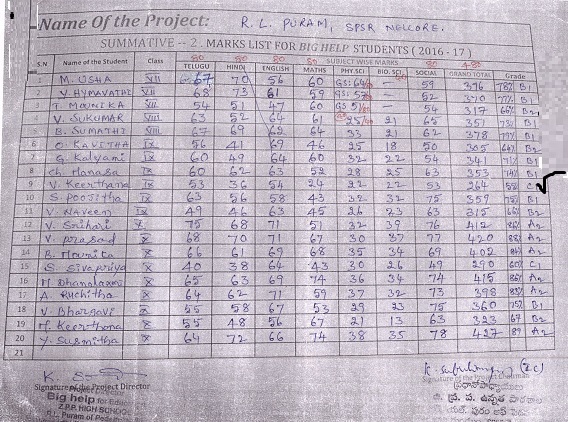 Name Of the Project: R. L. PURAM, SPSR NELLORE.
SUMMATIVE -- 2. MARKS LIST FOR BIG HELP STUDENTS ( 2016 - 17 )
80 80 80 80 80 480
SUBJECT WISE MARKS
S.N Name of the Student Class TELUGU HINDI ENGLISH MATHS PHY.SCI BIO. SCI SOCIAL GRAND TOTAL Grade
1 M. USHA VII 67 70 56 60 GS: 64 — 59 376 78% B1
2 Y. HYMAVATHI VII 68 73 61 59 GS: 57 — 52 370 77% B1
3 T. MOUNIKA VII 54 51 47 60 GS 51 — 54 317 66% B2
4 V. SUKUMAR VIII 63 52 64 61 25 21 65 351 73% B1
5 B. SUMATHI VIII 67 69 62 64 33 21 62 378 79% B1
6 O. KAVITHA IX 56 41 69 46 25 18 50 305 64% B2
7 G. Kalyani IX 60 49 64 60 32 22 54 341 71% B1
8 Ch. Manasa IX 60 62 63 52 28 25 63 353 74% B1
9 V. Keerthana IX 53 36 54 24 22 22 53 264 55% C1
10 S. Poojitha IX 63 56 58 43 32 32 75 359 75% B1
11 V. Naveen IX 49 46 63 45 26 23 63 315 66% B2
12 V. Srihari X 75 68 71 51 32 39 76 412 86% A2
13 V. prasad X 68 70 71 67 30 37 77 420 88% A2
14 B. Mounica X 66 61 69 68 35 34 69 402 84% A2
15 S. Sivapriya X 40 38 64 43 30 26 49 290 60% C1
16 M Dhanalaxmi X 65 63 69 74 36 34 74 415 86% A2
17 A. Ruchitha X 64 62 71 59 37 32 73 398 83% A2
18 V. Bhargavi X 55 58 67 53 29 23 75 360 75% B1
19 M. Keerthana X 55 48 56 67 21 13 63 323 67 B2
20 Y. Susmitha X 64 72 66 74 38 35 78 427 89 A2
21
Signature of the Project Director
Signature of the
Big help for
Z.P.P. HIGH SCHOOL
Puram of
ప్రధానోపాధ్యాయులు
ఉన్నత పాఠశాల
పురం